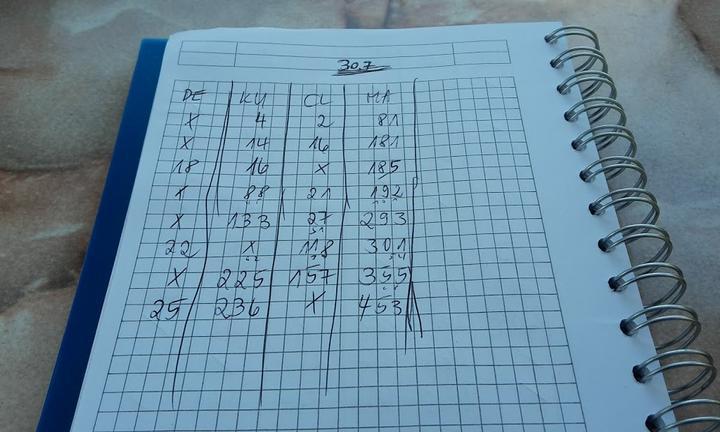 30.7
DE KU CL MA
X 4 2 81
X 14 16 181
18 16 X 185
X 88 21 192
X 133 27 293
22 X 118 301
X 225 157 355
25 236 X 453